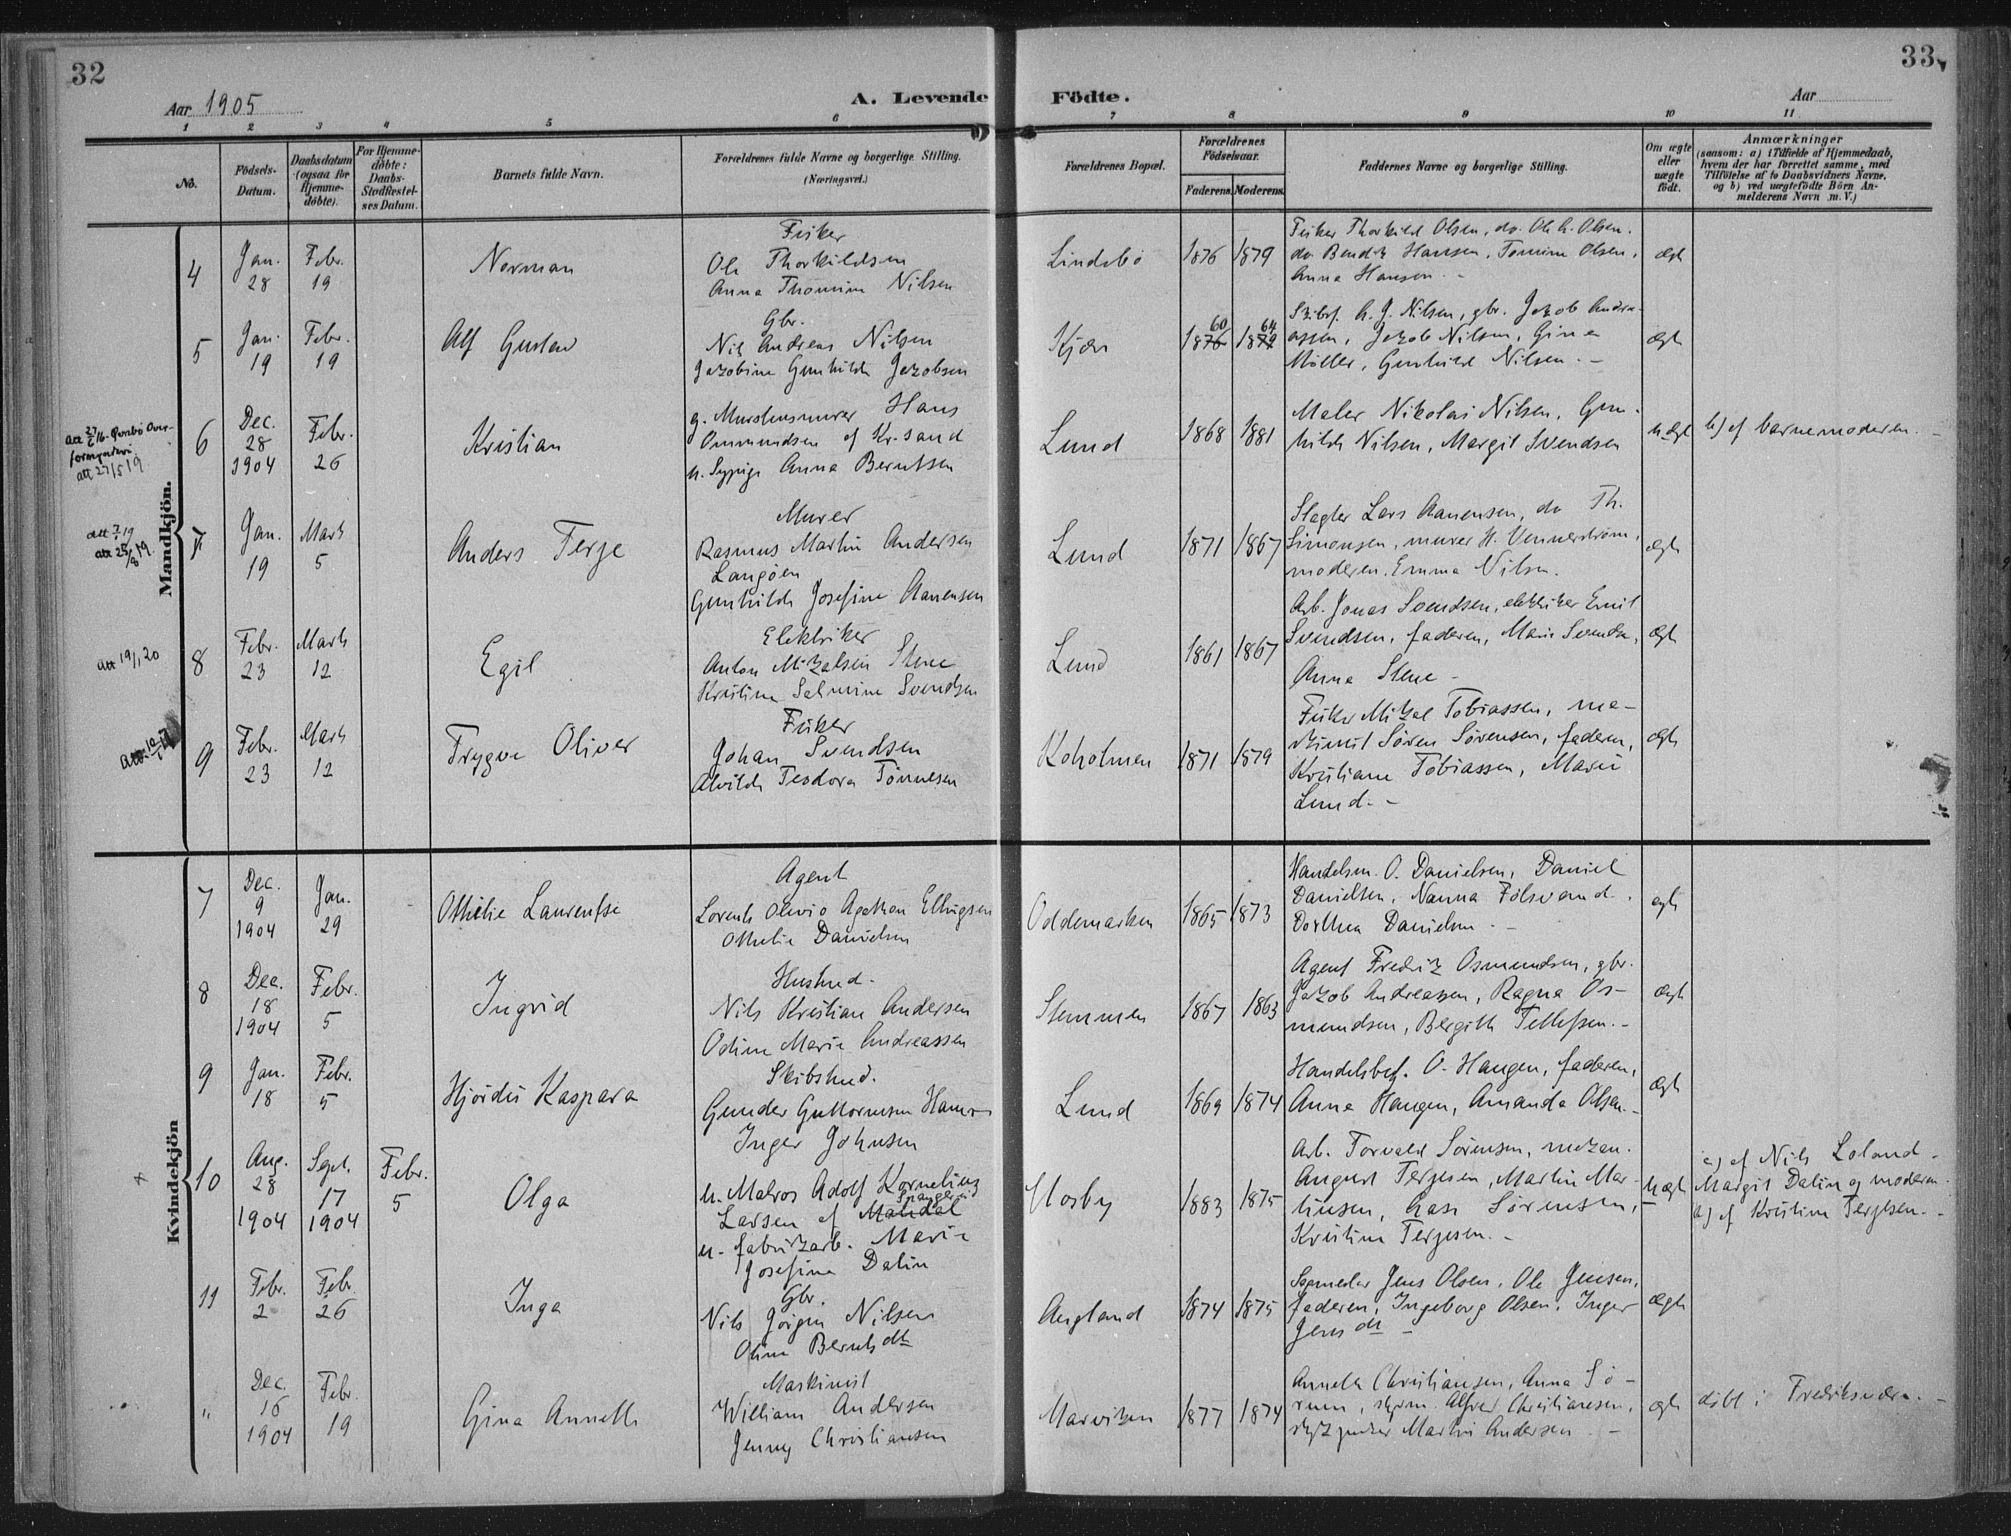 32
33
Aar 1905
A. Levende Födte.
Aar
1 2 3 4 5 6 7 8 9 10 11
No.
Födsels-Datum.
Daabsdatum (ogsaa for Hjemme-döbte).
For Hjemme-döbte: Daabs-Stadfæstel-ses Datum.
Barnets fulde Navn.
Forældrenes fulde Navne og borgerlige Stilling.
(Næringsvei.)
Forældrenes Bopæl.
Forældrenes Födselsaar.
Faderens. Moderens.
Faddernes Navne og borgerlige Stilling.
Om ægte eller uægte födt.
Anmærkninger
(saasom: a) i Tilfælde af Hjemmedaab,
hvem der har forrettet samme, med
Tilföielse af to Daabsvidners Navne,
og b) ved uægtefödte Börn An-
melderens Navn m. V.)
Mandkjön.
4
Jan. 28
Febr. 19
Norman
Fisker
Ole Thorkildsen
Anna Thomine Nilsen
Lindebö
1876 1879
Fisker Thorkild Olsen, do. Ole G. Olsen.
do Bendik Hansen, Tomine Olsen,
Anna Hansen. -
ægte
5
Jan. 19
Febr. 19
Alf Gustav
Gbr.
Nils Andreas Nilsen
Jakobine Gunhilde Jakobsen
Kjær
1876 60 1879 64
Skibsf. A. J. Nilsen, gbr. Jakob Andre-
assen, Jakob Nilsen, Gina
Möller, Gunhild Nilsen. -
ægte
att 27/5 19
6
Dec. 28 1904
Febr. 26
Kristian
g. Murstensmurer Hans
Ommundsen af Kr.sand
u. Sypige Anna Berntsen
Lund
1868 1881
Maler Nikolai Nilsen, Gun-
hilde Nilsen, Margit Svendsen
uægte
b) af barnemoderen. -
att 7/7 19
att 25/8 19.
7
Jan. 19
Marts 5
Anders Terje
Murer
Rasmus Martin Andersen
Langöen
Gunhilde Josefine Aanensen
Lund
1871 1867
Slagter Lars Aanensen, do Th.
Simonsen, murer H. Vennerström,
moderen, Emma Nilsen.
ægte
att 19/1 20
8
Febr. 23
Marts 12
Egil
Elektriker
Anton Mikalsen Stene
Kristine Selmine Svendsen
Lund
1861 1867
Arb. Jonas Svendsen, elektriker Emil
Svendsen, faderen, Marie Svendsen,
Anna Stene -
ægte
9
Febr. 23
Marts 12
Trygve Oliver
Fisker
Johan Svendsen
Alvilde Teodora Tönnesen
Koholmen
1871 1879
Fisker Mikal Tobiassen, ma-
skinist Sören Sörensen, faderen,
Kristiane Tobiassen, Marie
Lund. -
ægte
Kvindekjön
7
Dec. 9 1904
Jan. 29
Othilie Laurentse
Agent
Lorents Olivio Agathon Ellingsen
Othelie Danielsen
Oddemarken
1865 1873
Handelsm. O. Danielsen, Daniel
Danielsen, Nanna Fölsvand.
Dorthea Danielsen. -
ægte
8
Dec. 18 1904
Febr. 5
Ingrid
Husmd.
Nils Kristian Andersen
Odine Marie Andreassen
Stemmen
1867 1863
Agent Fredrik Osmundsen, gbr.
Jakob Andreassen, Ragna Os-
mundsen, Bergith Tellefsen. -
ægte
9
Jan. 18
Febr. 5
Hjördis Kaspara
Skibstmd.
Gunder Guttormsen Hamre
Inger Johnsen
Lund
1869 1874
Handelsbetj. O. Haugen, faderen,
Anna Haugen, Amanda Olsen. -
ægte
10
Aug. 28 1904
Sept. 17 1904
Febr. 5
Olga
u. Matros Adolf Kornelius
Larsen af Mandal
u. fabrikarb. Marie
Josefine Dalin
Mosby
1883 1875
Arb. Torvald Sörensen, mekan.
August Terjesen, Martin Mar-
tinsen, Sörensen,
Kristine Terjesen. -
uægte
a) af Nils Loland.
Margit Dalin og moderen.
b) af Kristine Terjesen. -
11
Febr. 2
Febr. 26
Inga
Gbr.
Nils Jörgen Nilsen
Oline Berntsdtr
Augland
1874 1875
Skomedar Jens Olsen, Ole Jensen,
faderen, Ingeborg Olsen, Inger
Jensdtr -
ægte
"
Dec. 16 1904
Febr. 19
Gina Annette
Maskinist
William Andersen
Jenny Christiansen
Marviken
1877 1874
Annette Christiansen, Anna Sö-
rum, styrm. Alfred Christiansen,
Martin Andersen. -
ægte
döbt i Fredriksværn. -